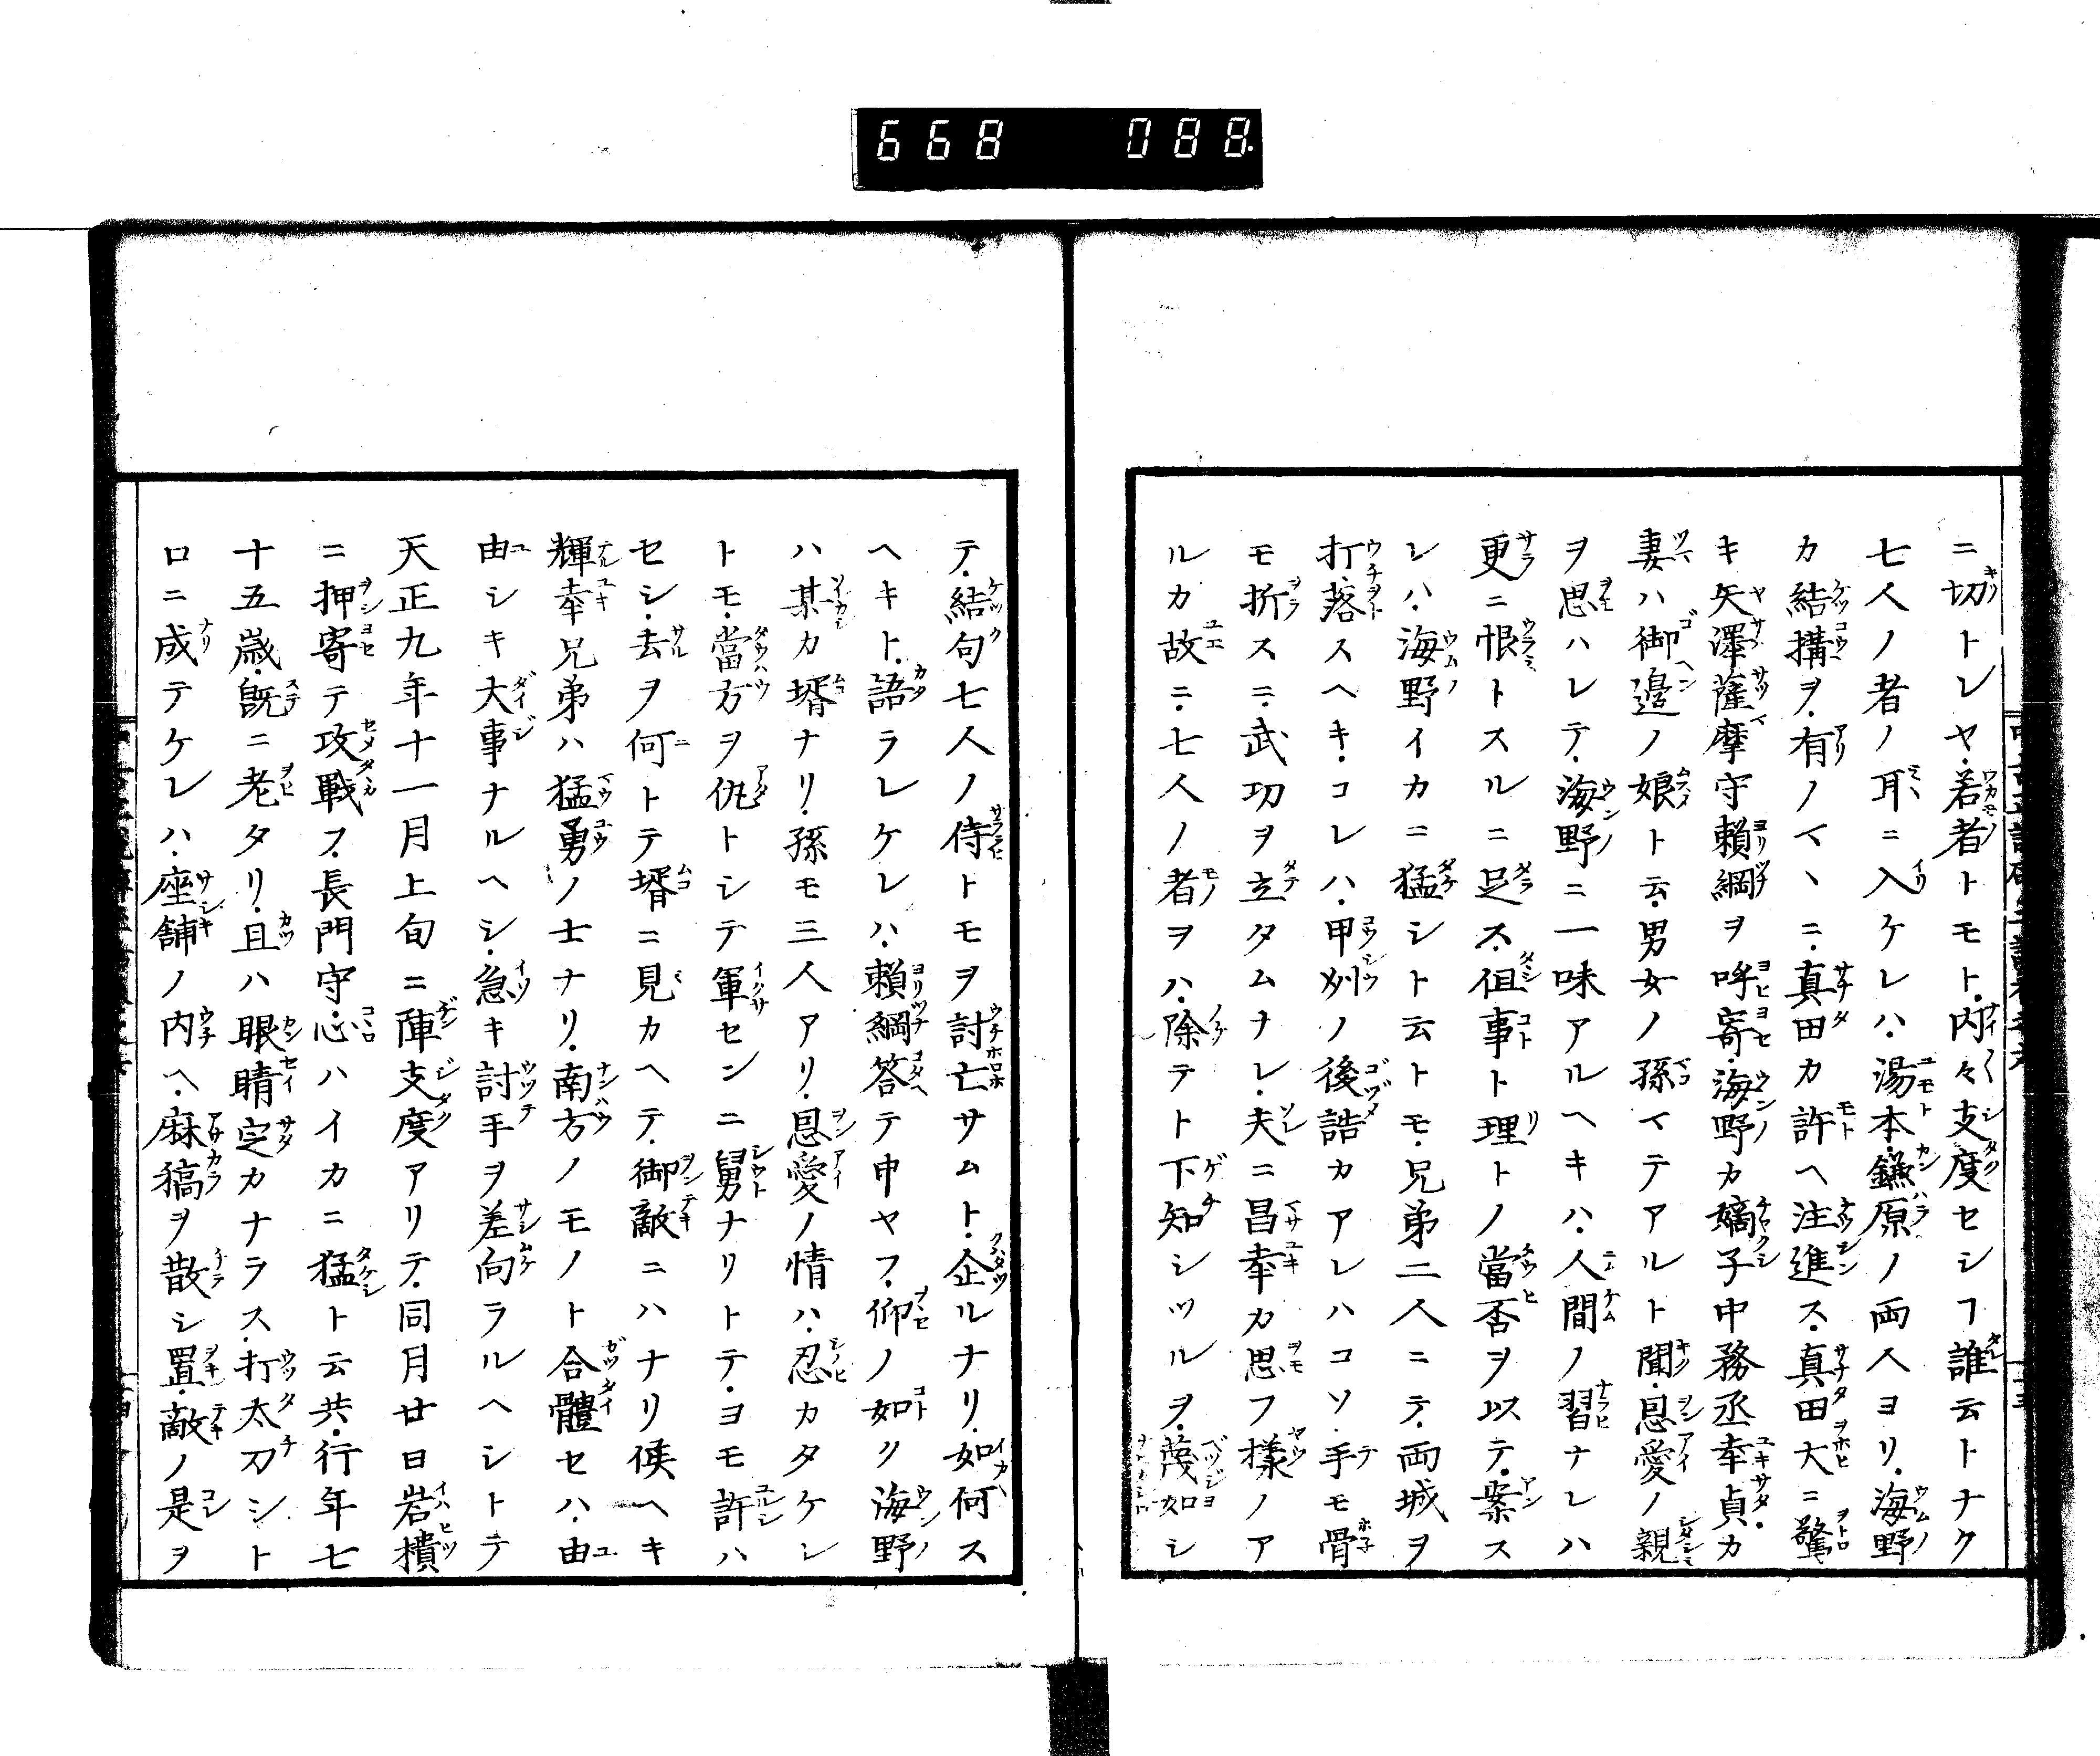 668 088.
ニ切トレヤ・若者トモト・内々支度セシフ誰云トナク
七人ノ者ノ耳ニ入ケレハ・湯本・鎌原ノ両人ヨリ・海野
カ結搆ヲ・有ノマヽニ・真田カ許ヘ注進ス・真田大ニ驚
キ矢澤薩摩守頼綱ヲ呼寄・海野カ嫡子中務丞幸貞カ
妻ハ御邉ノ娘ト云・男女ノ孫マテアルト聞・恩愛ノ親
ヲ思ハレテ・海野ニ一味アルヘキハ・人間ノ習ナレハ
更ニ恨トスルニ足ス・但事ト理トノ當否ヲ以テ・案ス
レハ・海野イカニ猛シト云トモ・兄弟二人ニテ・両城ヲ
打落スヘキ・コレハ・甲州ノ後詰カアレハコソ・手モ骨
モ折スニ・武功ヲ立タムナレ・夫ニ昌幸カ思フ様ノア
ルカ故ニ・七人ノ者ヲハ・除テト下知シツルヲ・蔑如シ
テ・結句七人ノ侍トモヲ討亡サムト・企ルナリ・如何ス
ヘキト・語ラレケレハ・頼綱答テ申ヤフ・仰ノ如ク海野
ハ某カ壻ナリ・孫モ三人アリ・恩愛ノ情ハ・忍カタケレ
トモ・當方ヲ仇トシテ軍センニ舅ナリトテ・ヨモ許ハ
セシ・去ヲ何トテ壻ニ見カヘテ・御敵ニハナリ候ヘキ
輝幸兄弟ハ猛勇ノ士ナリ・南方ノモノト合體セハ・由
由シキ大事ナルヘシ・急キ討手ヲ差向ラルヘシトテ
天正九年十一月上旬ニ陣支度アリテ・同月廿日岩櫃
ニ押寄テ攻戰フ・長門守・心ハイカニ猛ト云共・行年七
十五歳・既ニ老タリ・且ハ眼睛定カナラス・打太刀シト
ロニ成テケレハ・座舗ノ内ヘ・麻稿ヲ散シ置・敵ノ是ヲ